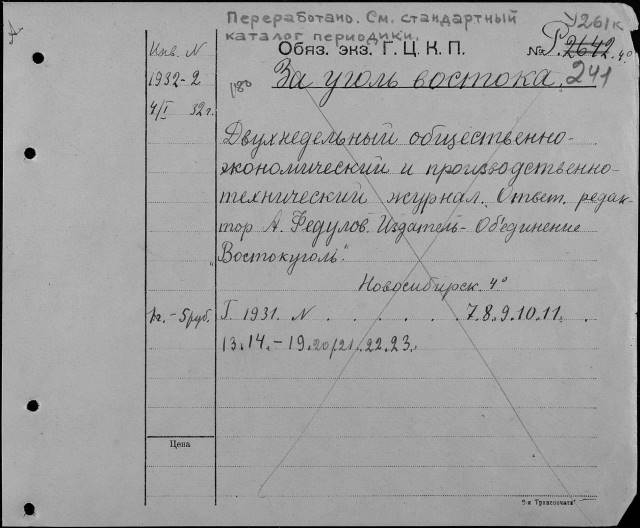 Переработано. См. стандартный
каталог периодики.
У261к
Обяз. экз. Г. Ц. К. П.
№ Р.2642.4°
241
Инв. N
1932-2
4/I 32 г.
180
За уголь востока.
Двухнедельный общественно-
экономический и производственно-
технический журнал. Ответ. редак-
тор А. Федулов. Издатель - Объединение
„Востокуголь".
Новосибирск. 4°
1г. - 5 руб.
I. 1931. N . . . . . . 7.8.9.10.11. .
13.14.-19.20/21.22.23.
Цена